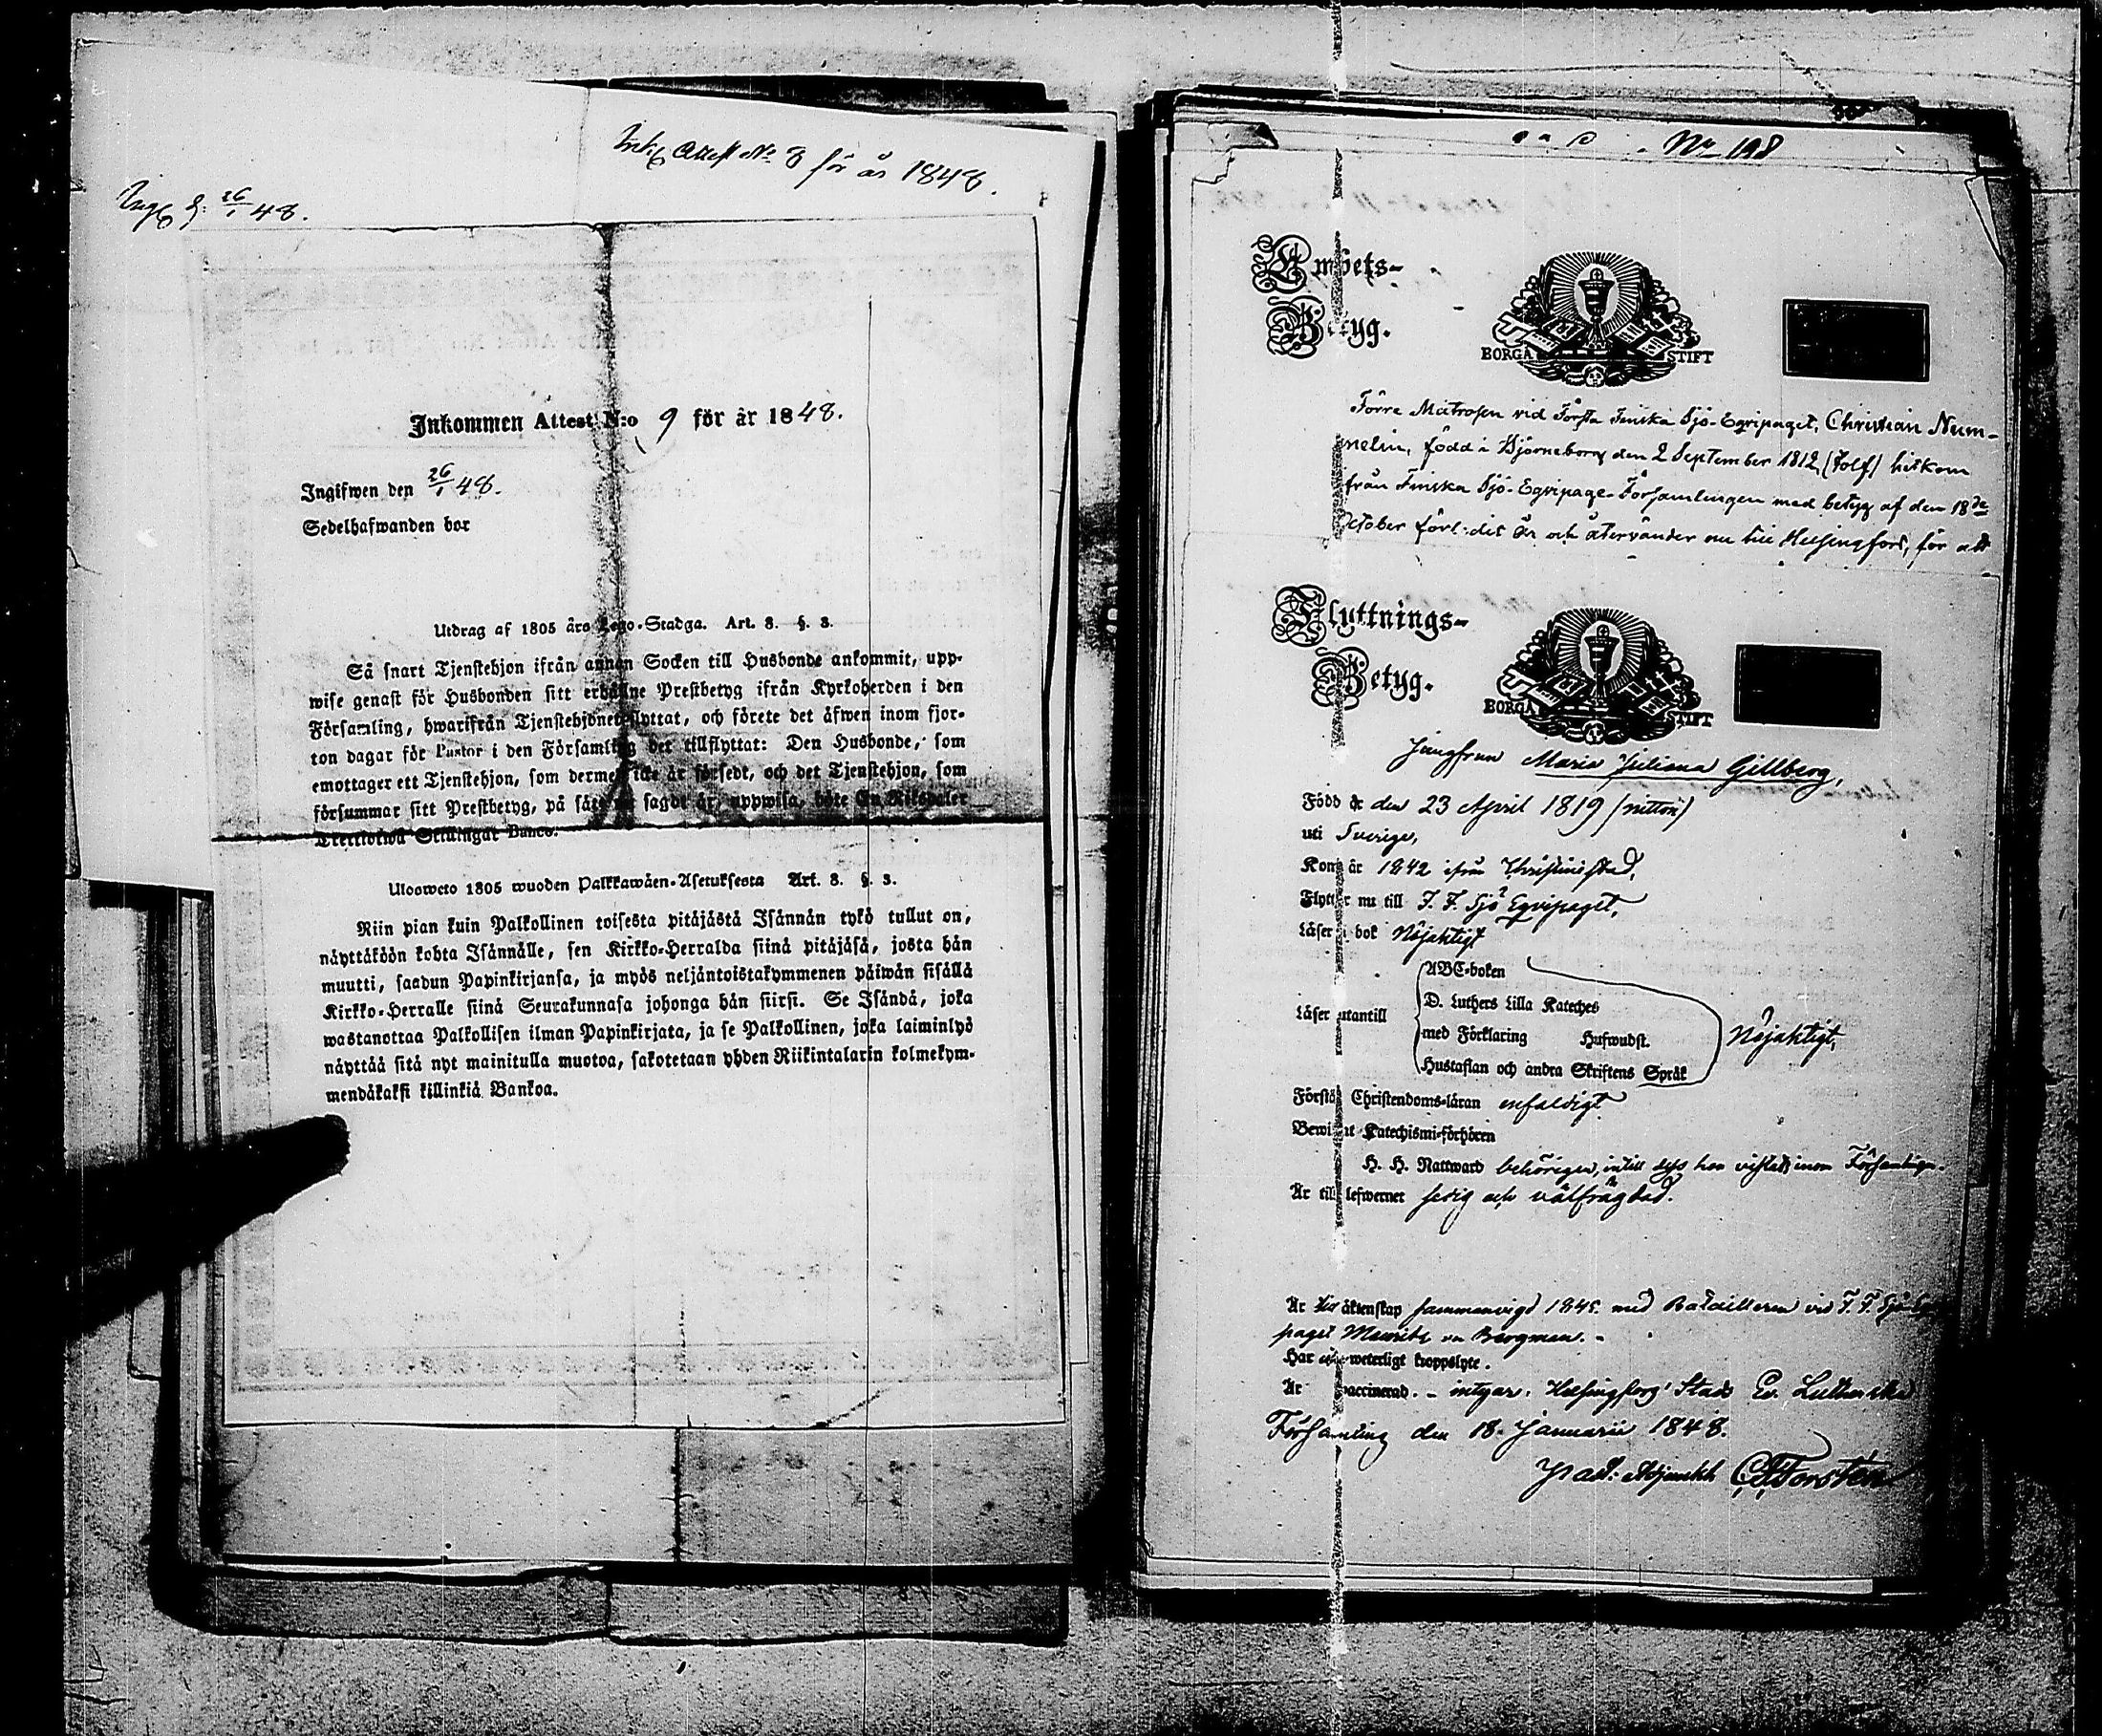 Ink. Attest No 8 för år 1848.
Ing. d. 26/1 48.
Inkommen Attest N:o 9 för år 1848.
Ingifwen den 26/1 48.
Sedelhafwanden bor
Utdrag af 1805 års Lego-Stadga. Art. 8. §. 3.
Så snart Tjenstehjon ifrån annan Socken till Husbonde ankommit, upp-
wise genast för Husbonden sitt erhållne Prestbetyg ifrån Kyrkoherden i den
Församling, hwarifrån Tjenstehjonet flyttat, och förete det äfwen inom fjor-
ton dagar för Pastor i den Församling det tillflyttat: Den Husbonde, som
emottager ett Tjenstehjon, som dermed icke är försedt, och det Tjenstehjon, som
försummar sitt Prestbetyg, på sätt nu sagdt är, uppwisa, böte En Riksdaler
Trettiotwå Skillingar Banco.
Ulosweto 1805 wuoden Palkkawäen-Asetuksesta Art. 8. §. 3.
Niin pian kuin Palkollinen toisesta pitäjästä Isännän tykö tullut on,
näyttäköön kohta Isännälle, sen Kirkko-Herralda siinä pitäjäsä, josta hän
muutti, saadun Papinkirjansa, ja myös neljäntoistakymmenen päiwän sisällä
Kirkko-Herralle siinä Seurakunnasa johonga hän siirsi. Se Isändä, joka
wastanottaa Palkollisen ilman Papinkirjata, ja se Palkollinen, joka laiminlyö
näyttää sitä nyt mainitulla muotoa, sakotetaan yhden Riikintalarin kolmekym-
mendäkaksi killinkiä Bankoa.
No 198
Embets-
Betyg.
BORGÅ STIFT
Förre Matrosen vid Första Finska Sjö-Eqvipaget, Christian Num-
melin, född i Björneborg den 2 September 1812, (tolf) hitkom
från Finska Sjö-Eqvipage-Församlingen med betyg af den 18de
October förl:det år och återvänder nu till Helsingfors, för att
Flyttnings-
Betyg.
BORGÅ STIFT
Jungfrun Maria Juliana Gillberg,
Född år den 23 April 1819 (nitton)
uti Sverige,
Kom år 1842 ifrån Christinestad,
Flyttar nu till F. F. Sjö Eqvipaget,
Läser i bok Nöjaktigt
ABC-boken
D. Luthers Lilla Kateches
Läser utantill
med Förklaring Hufwudst.
Nöjaktigt,
Hustaflan och andra Skriftens Språk
Förstår Christendoms-läran enfaldigt
Bewistat Katechismi-förhören
H. H. Nattward behörigen, intill dess hon vistats inom Församlingen.
Är till lefwernet sedig och välfrägdad.
Är till äktenskap sammanvigd 1845 med Batailleren vid F. F. Sjö-Eqvi-
paget Mauritz Bergman. -
Har weterligt kroppslyte.
Är vaccinerad. - intygar. Helsingfors Stads Ev. Lutherska
Församling den 18. Januarii 1848.
Past: Adjunkt Forstén